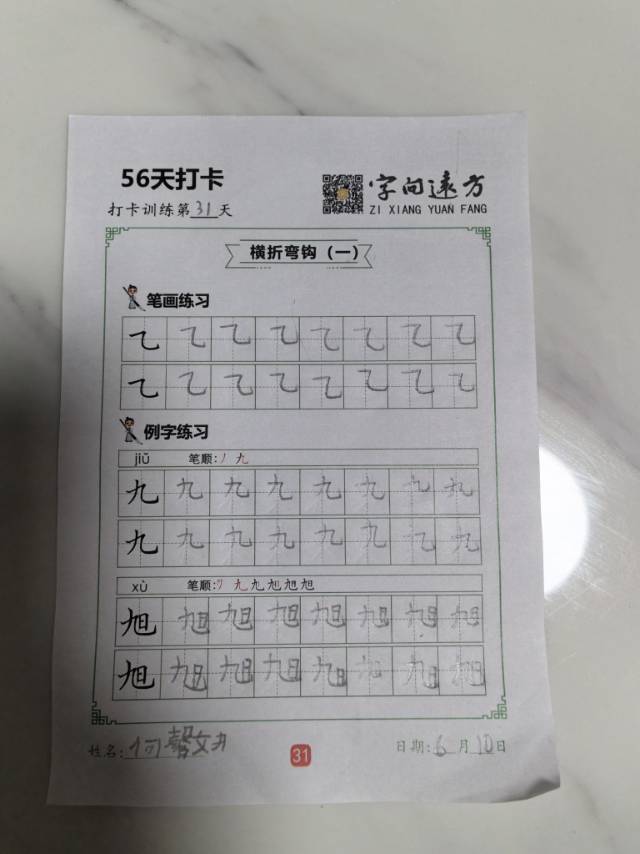 56天打卡
打卡训练第31天
字向远方
ZI XIANG YUAN FANG
横折弯钩（一）
笔画练习
乙 乙 乙 乙 乙 乙 乙 乙
乙 乙 乙 乙 乙 乙 乙 乙
例字练习
jiǔ 笔顺:丿 九
九 九 九 九 九 九 九 九
九 九 九 九 九 九 九 九
xù 笔顺:丿 九 九 旭 旭 旭
旭 旭 旭 旭 旭 旭 旭 旭
旭 旭 旭 旭 旭 旭 旭
姓名: 何馨文
31
日期: 6月10日